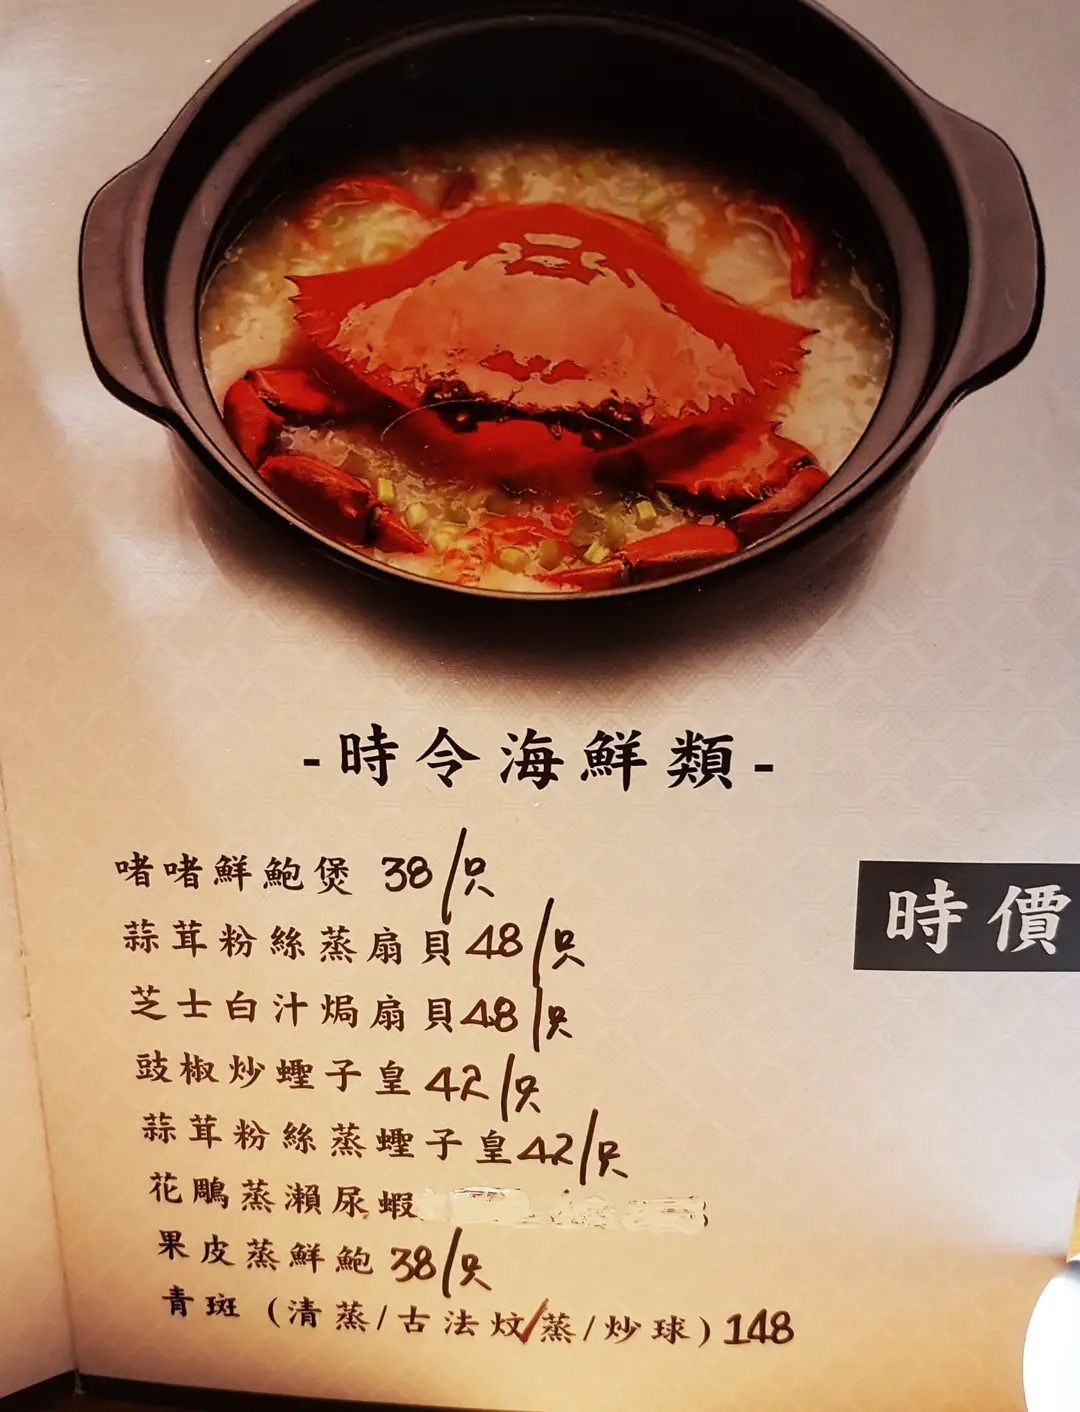 -時令海鮮類-
時價
啫啫鮮鮑煲 38/只
蒜茸粉絲蒸扇貝48/只
芝士白汁焗扇貝48/只
豉椒炒蟶子皇42/只
蒜茸粉絲蒸蟶子皇42/只
花鵰蒸瀨尿蝦
果皮蒸鮮鮑 38/只
青斑 (清蒸/古法炆/蒸/炒球) 148